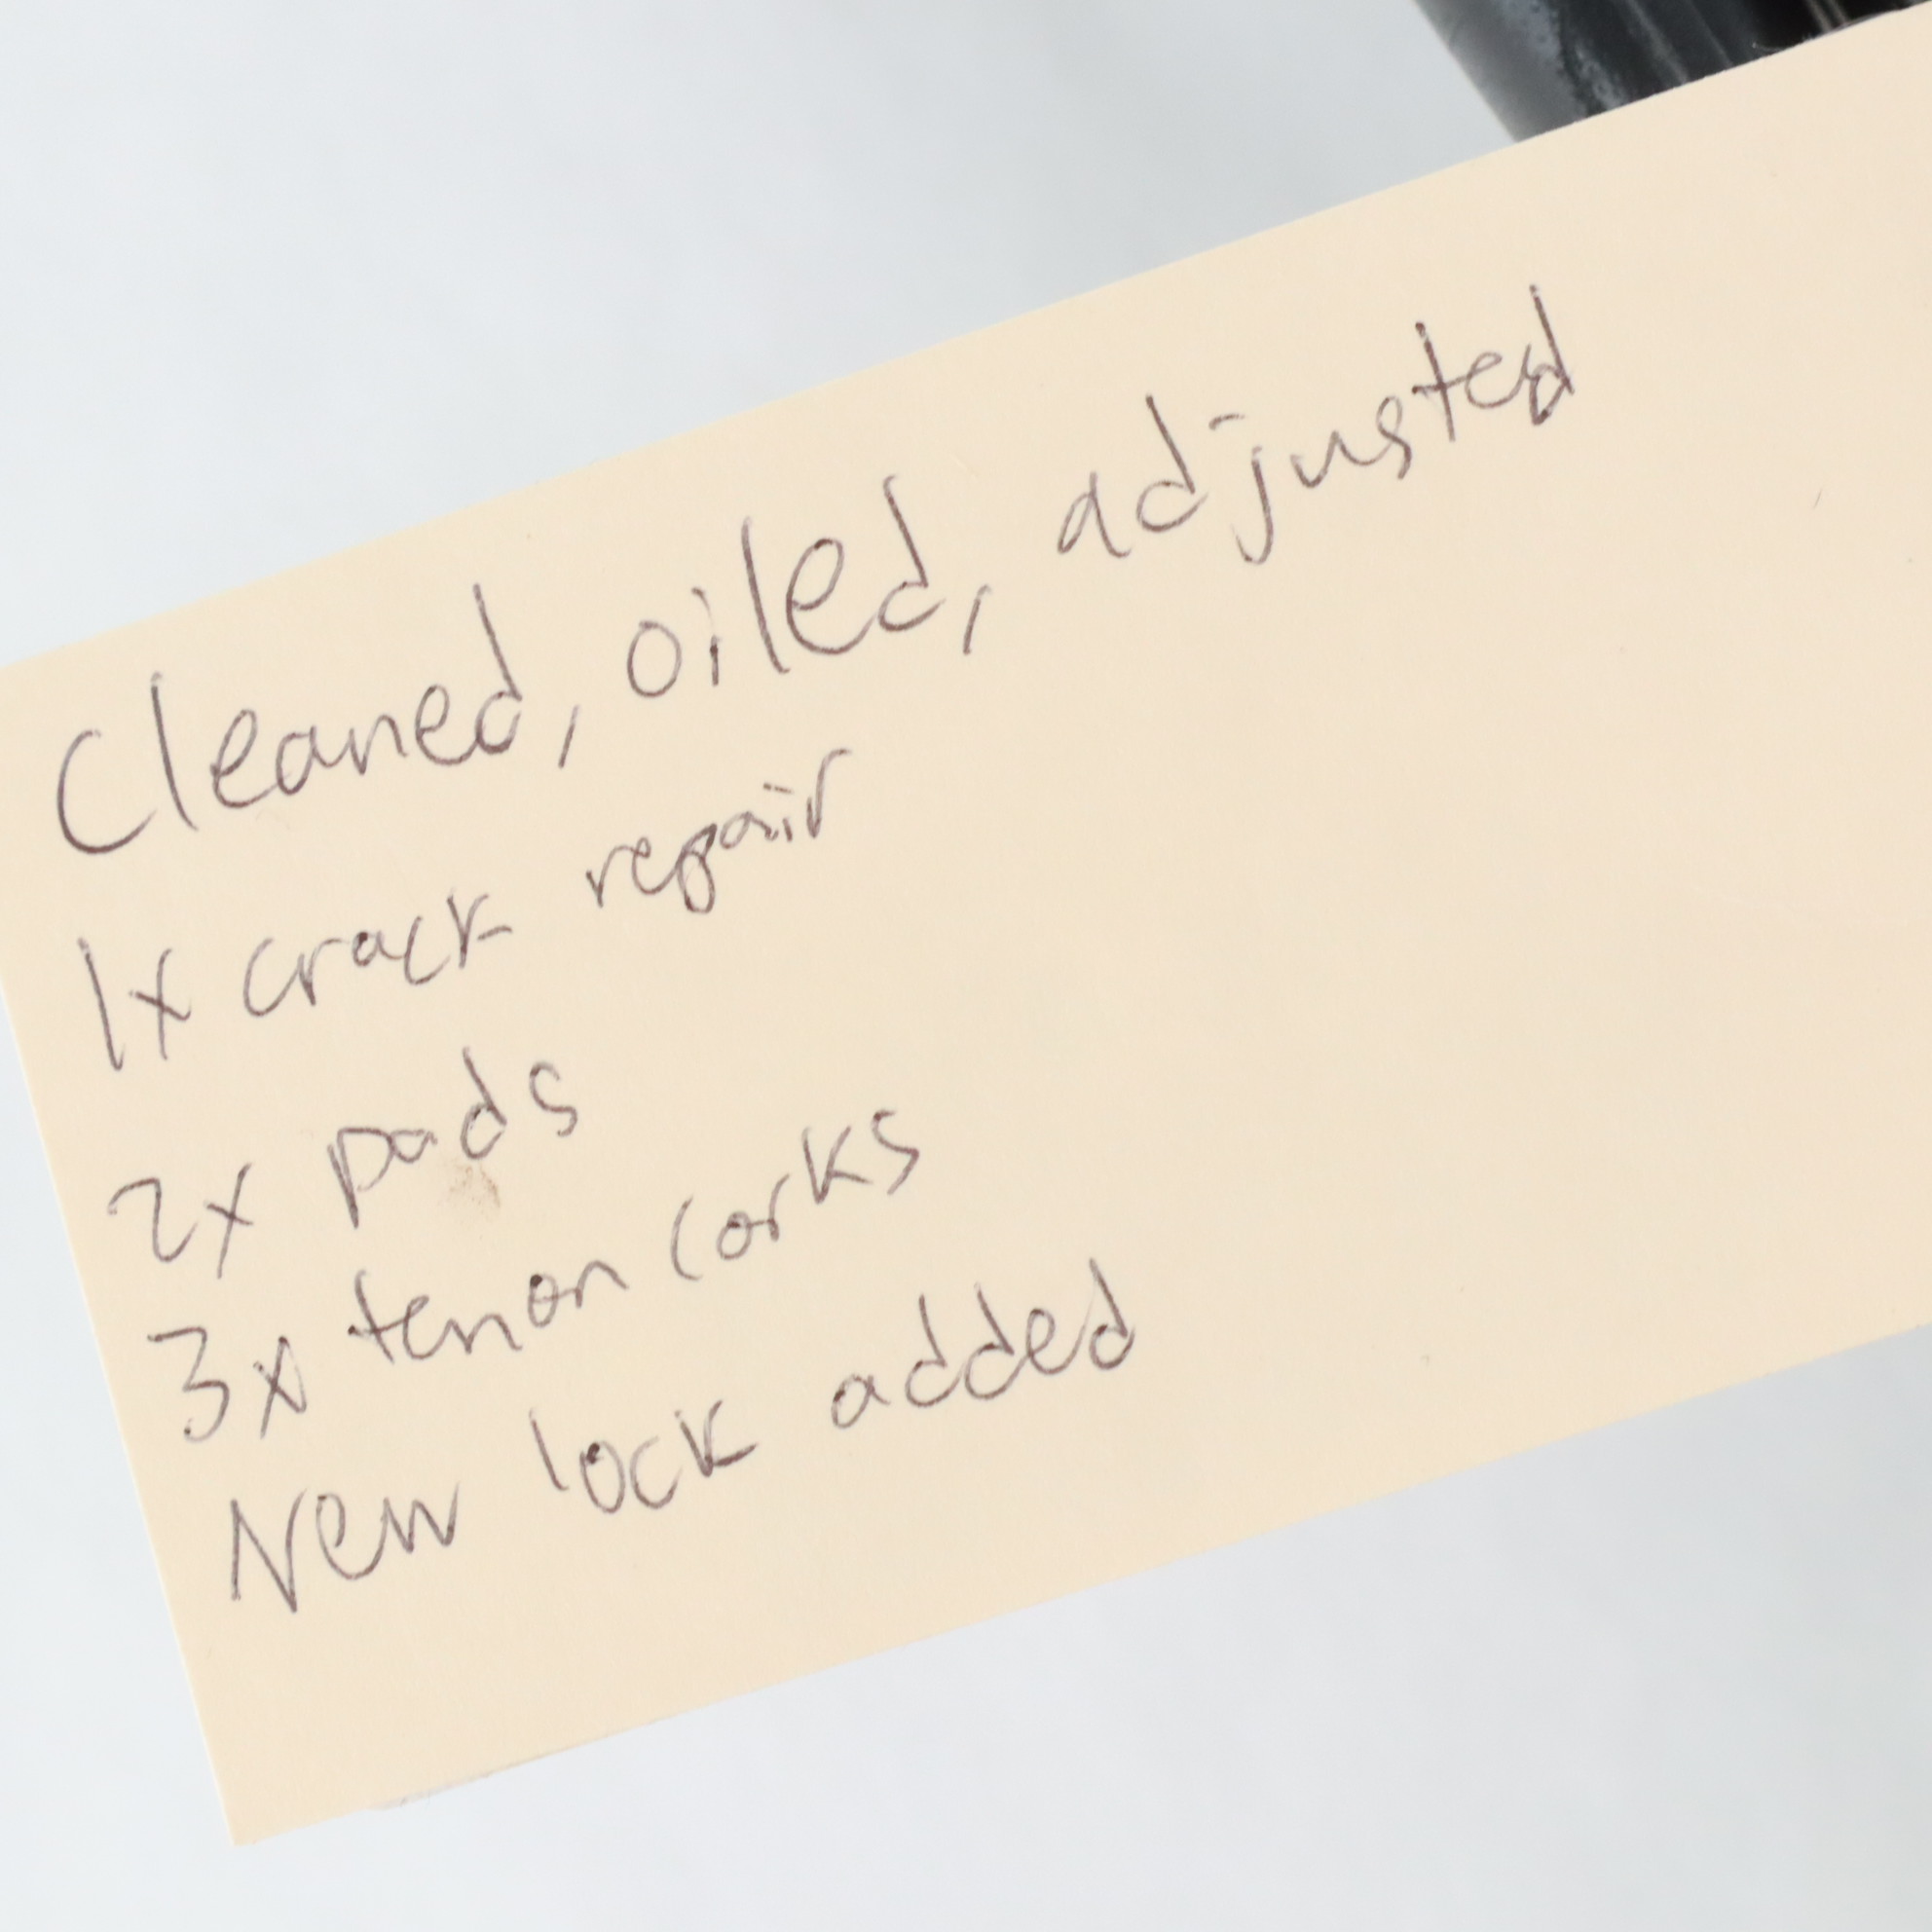 Cleaned, oiled, adjusted
1x crack repair
2x pads
3x tenon corks
New lock added